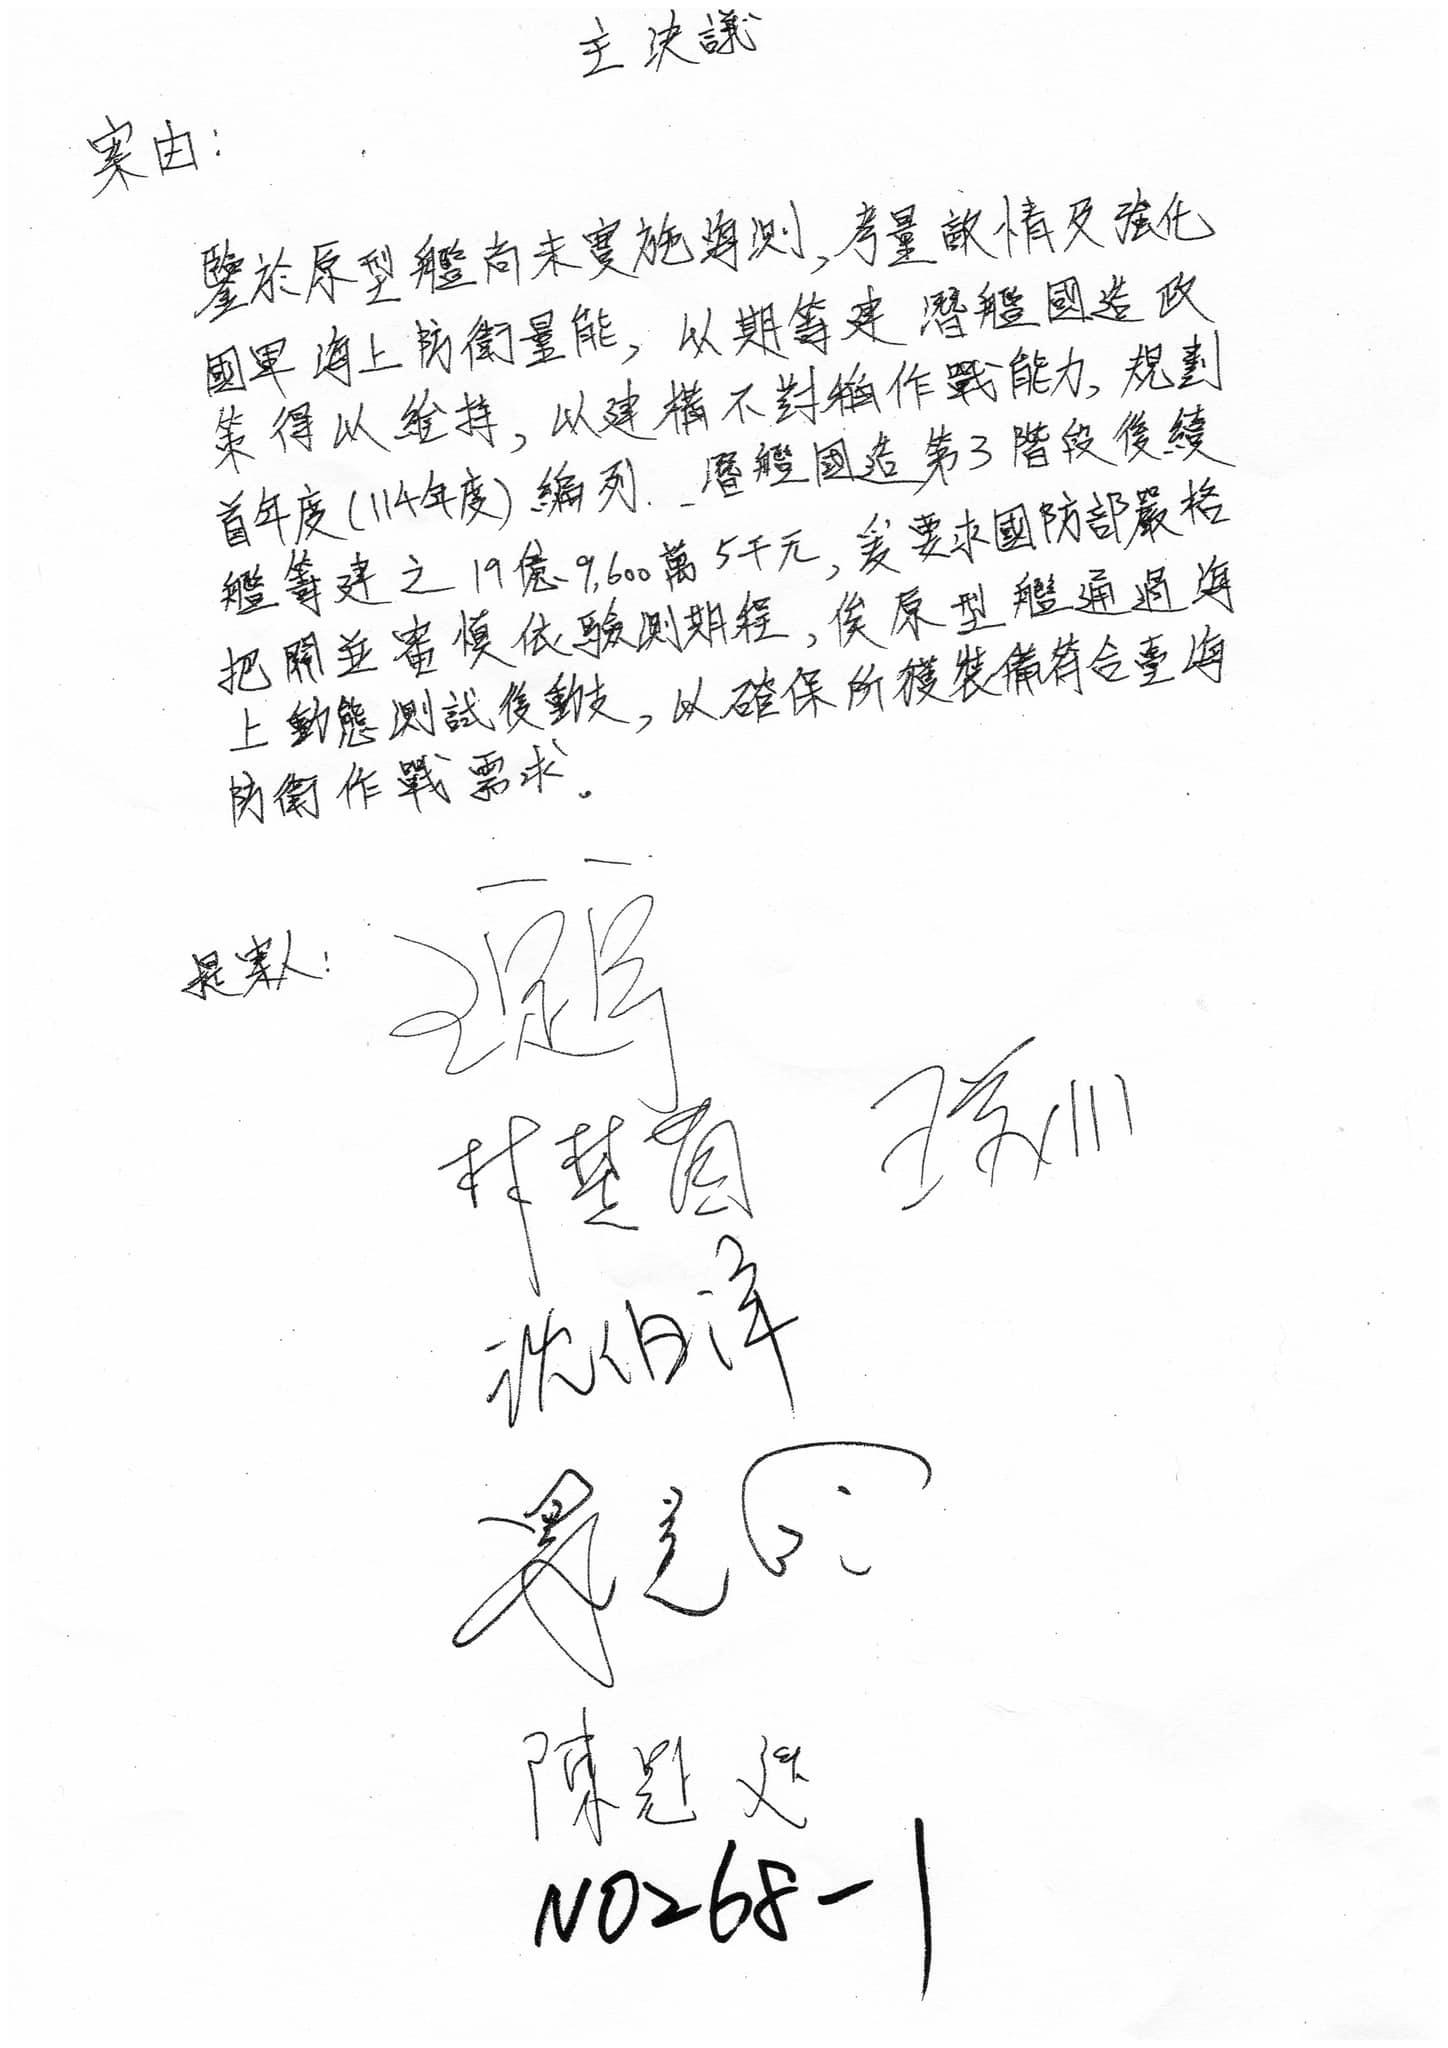 主決議
案由：
鑒於原型艦尚未實施海測，考量敵情及強化
國軍海上防衛量能，以期籌建潛艦國造政
策得以維持，以建構不對稱作戰能力，規劃
首年度(114年度)編列潛艦國造第3階段後續
艦籌建之19億9,600萬5千元，爰要求國防部嚴格
把關並審慎依驗測期程，俟原型艦通過海
上動態測試後動支，以確保所獲裝備符合臺海
防衛作戰需求。
提案人：
王定宇
林楚茵
沈伯洋
陳冠廷
NO268-1